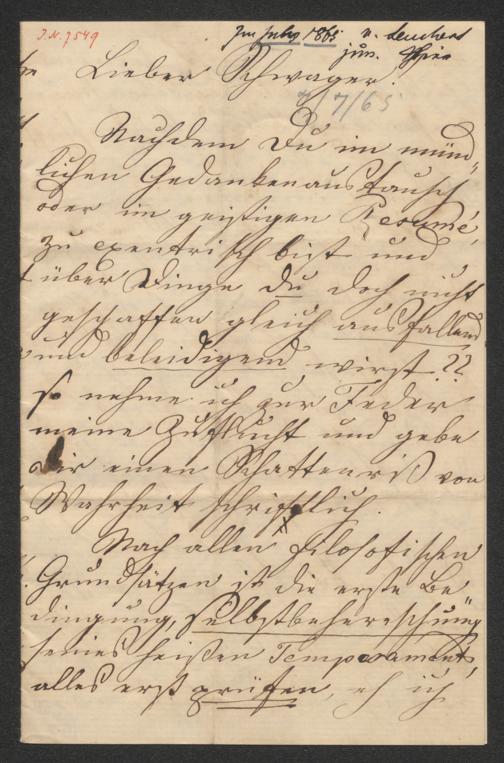 J.N. 7549
Im July 1865 v.
jun.
Lieber Schwager!
7/7/65
Nachdem Du im münd-
lichen Gedankenaustausch
oder im geistigen Resumé,
zu exentrisch bist und
über Dinge du doch nicht
geschaffen gleich ausfallend
und beleidigend wirst??
so nehme ich zur Feder
meine Zuflucht und gebe
Dir einen Schattenriß von
Wahrheit schriftlich.
Nach allen Filosofischen
Grundsätzen ist die erste Be
dingung, selbstbeherschung
seines heißen Temperament,
alles erst prüfen, eh ich